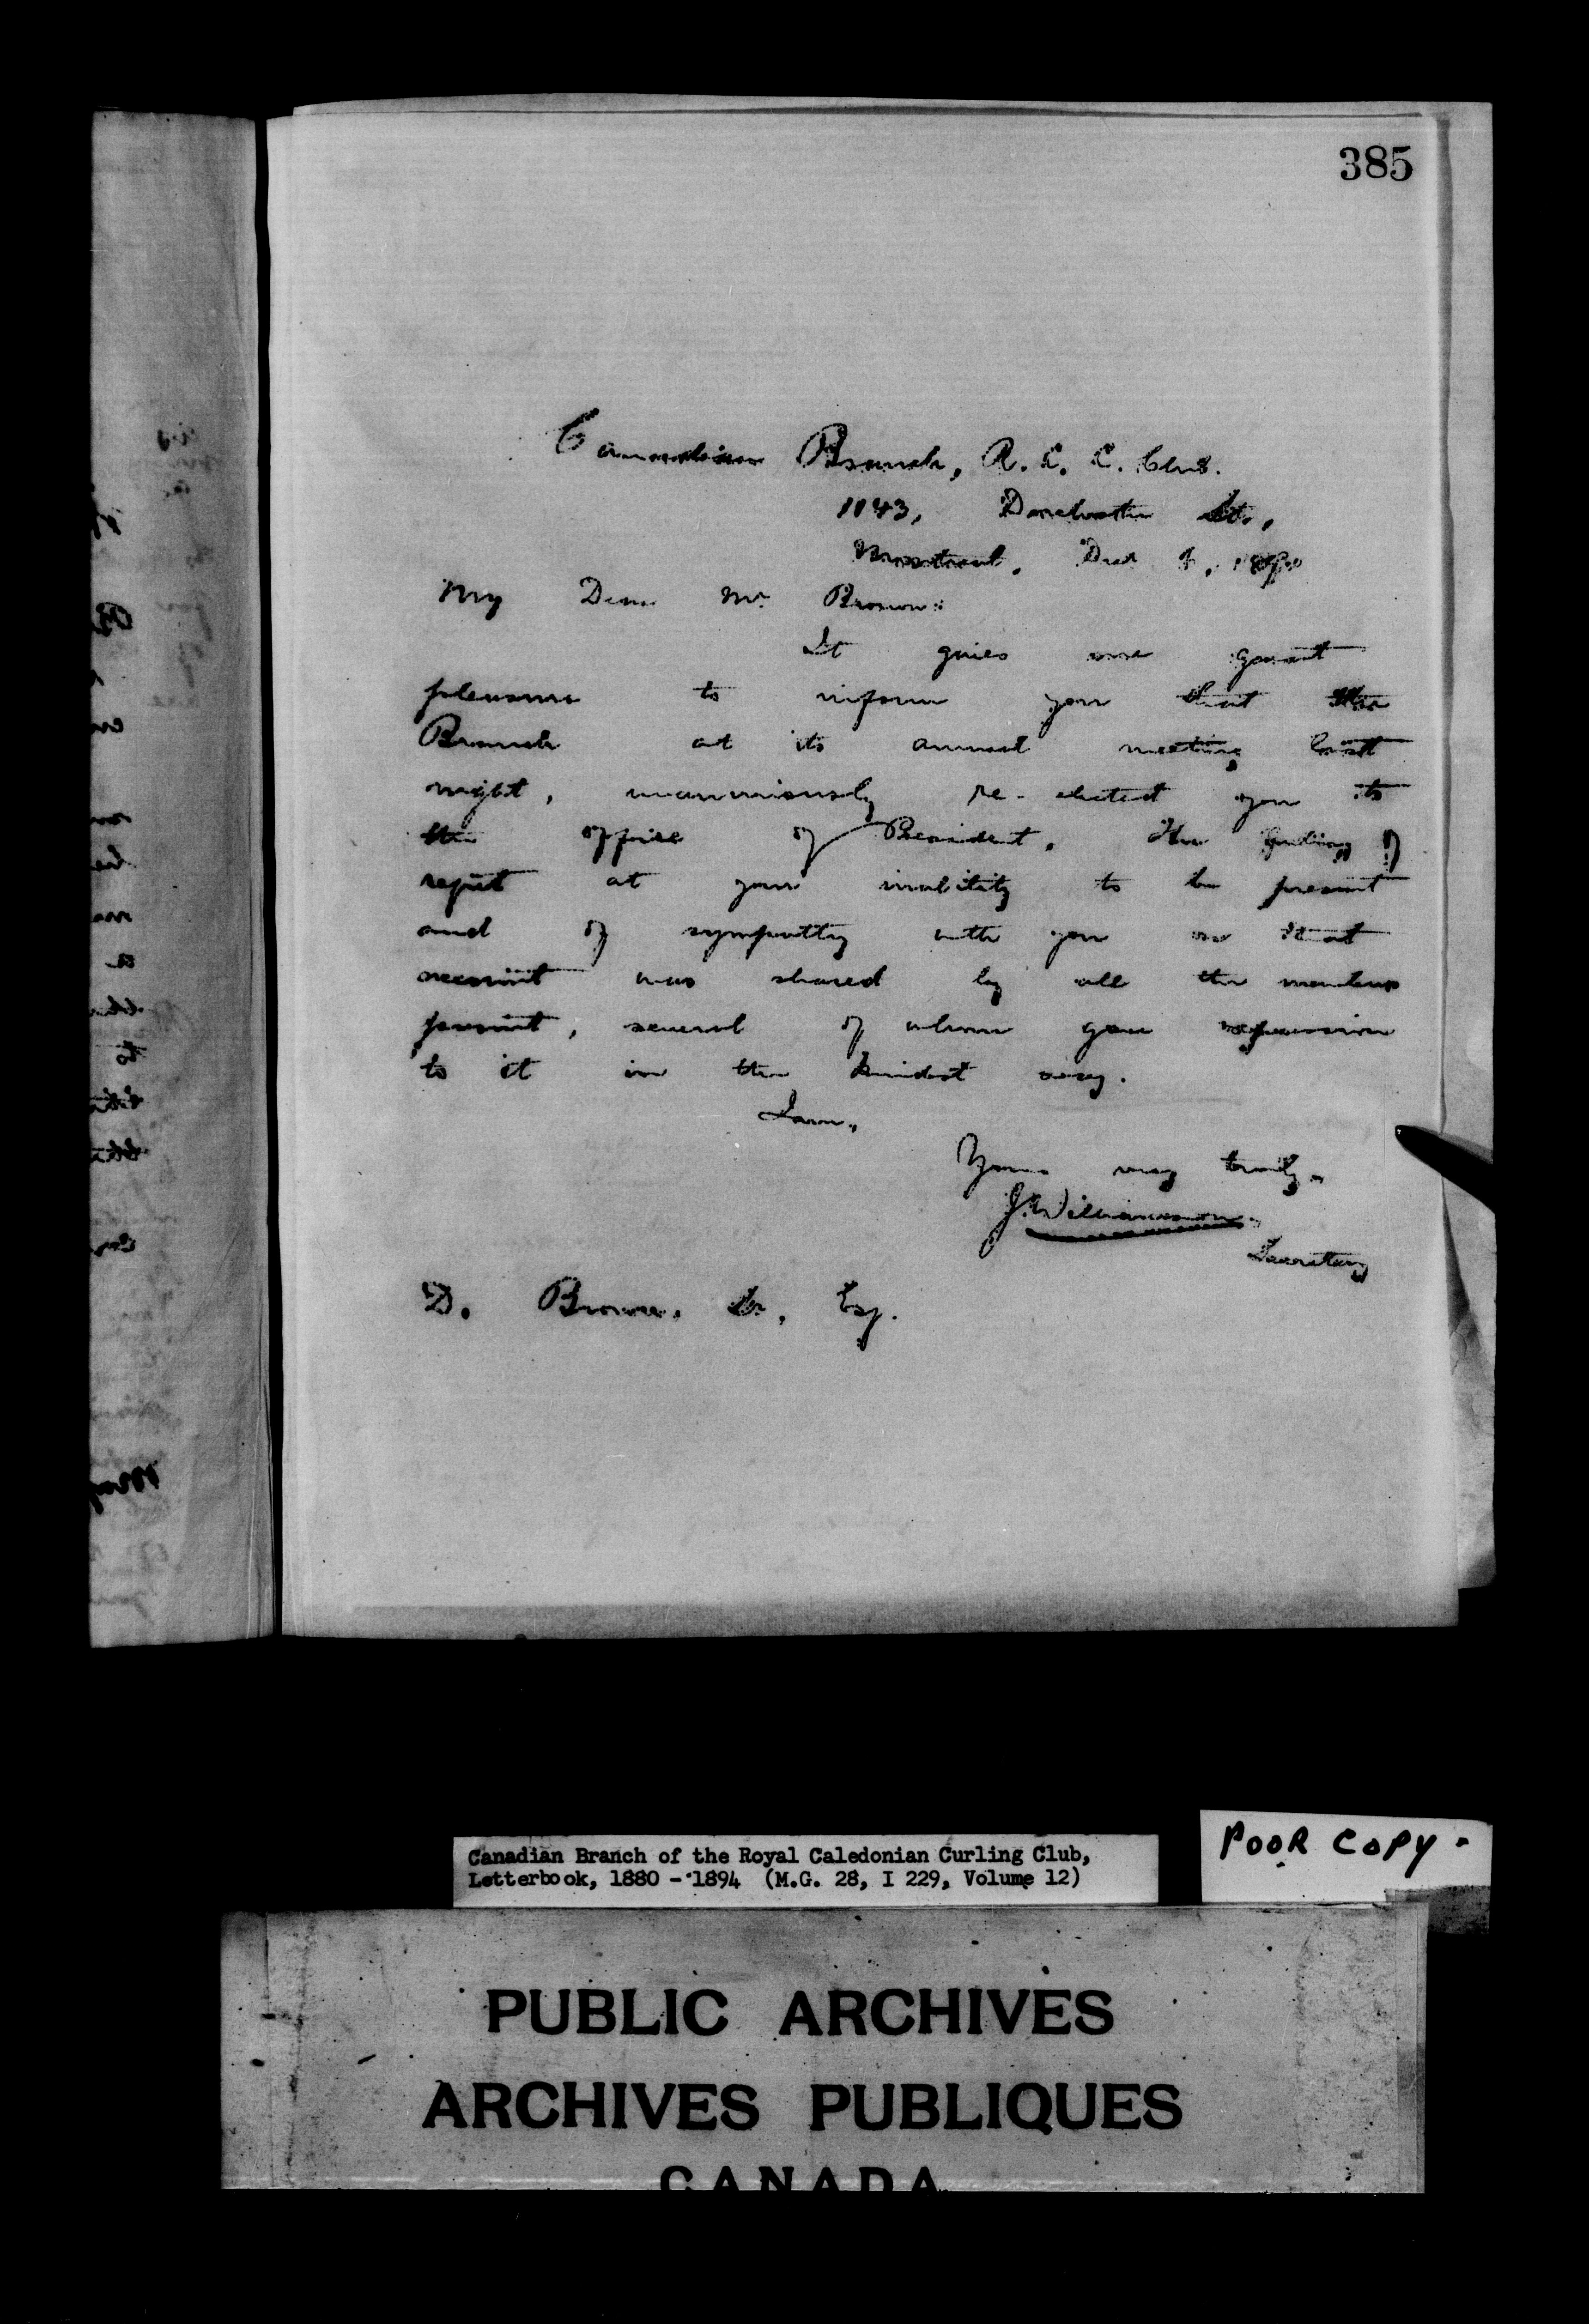 385
Canadian Branch, R. C. C. Club.
1143, Dorchester St.,
Montreal, Dec , 1890
My Dear Mr. Brown:
It gives me great
pleasure to inform you that the
Branch at its annual meeting last
night, unanimously re-elected you to
the office of President. The feeling of
regret at your inability to be present
and of sympathy with you on that
account was shared by all the members
present, several of whom gave expression
to it in the kindest way.
I am,
Yours very truly,
J. Williamson.
Secretary
D. Brown. Sr, Esq.
Canadian Branch of the Royal Caledonian Curling Club,
Letterbook, 1880 - 1894 (M.G. 28, I 229, Volume 12)
POOR COPY -
PUBLIC ARCHIVES
ARCHIVES PUBLIQUES
CANADA